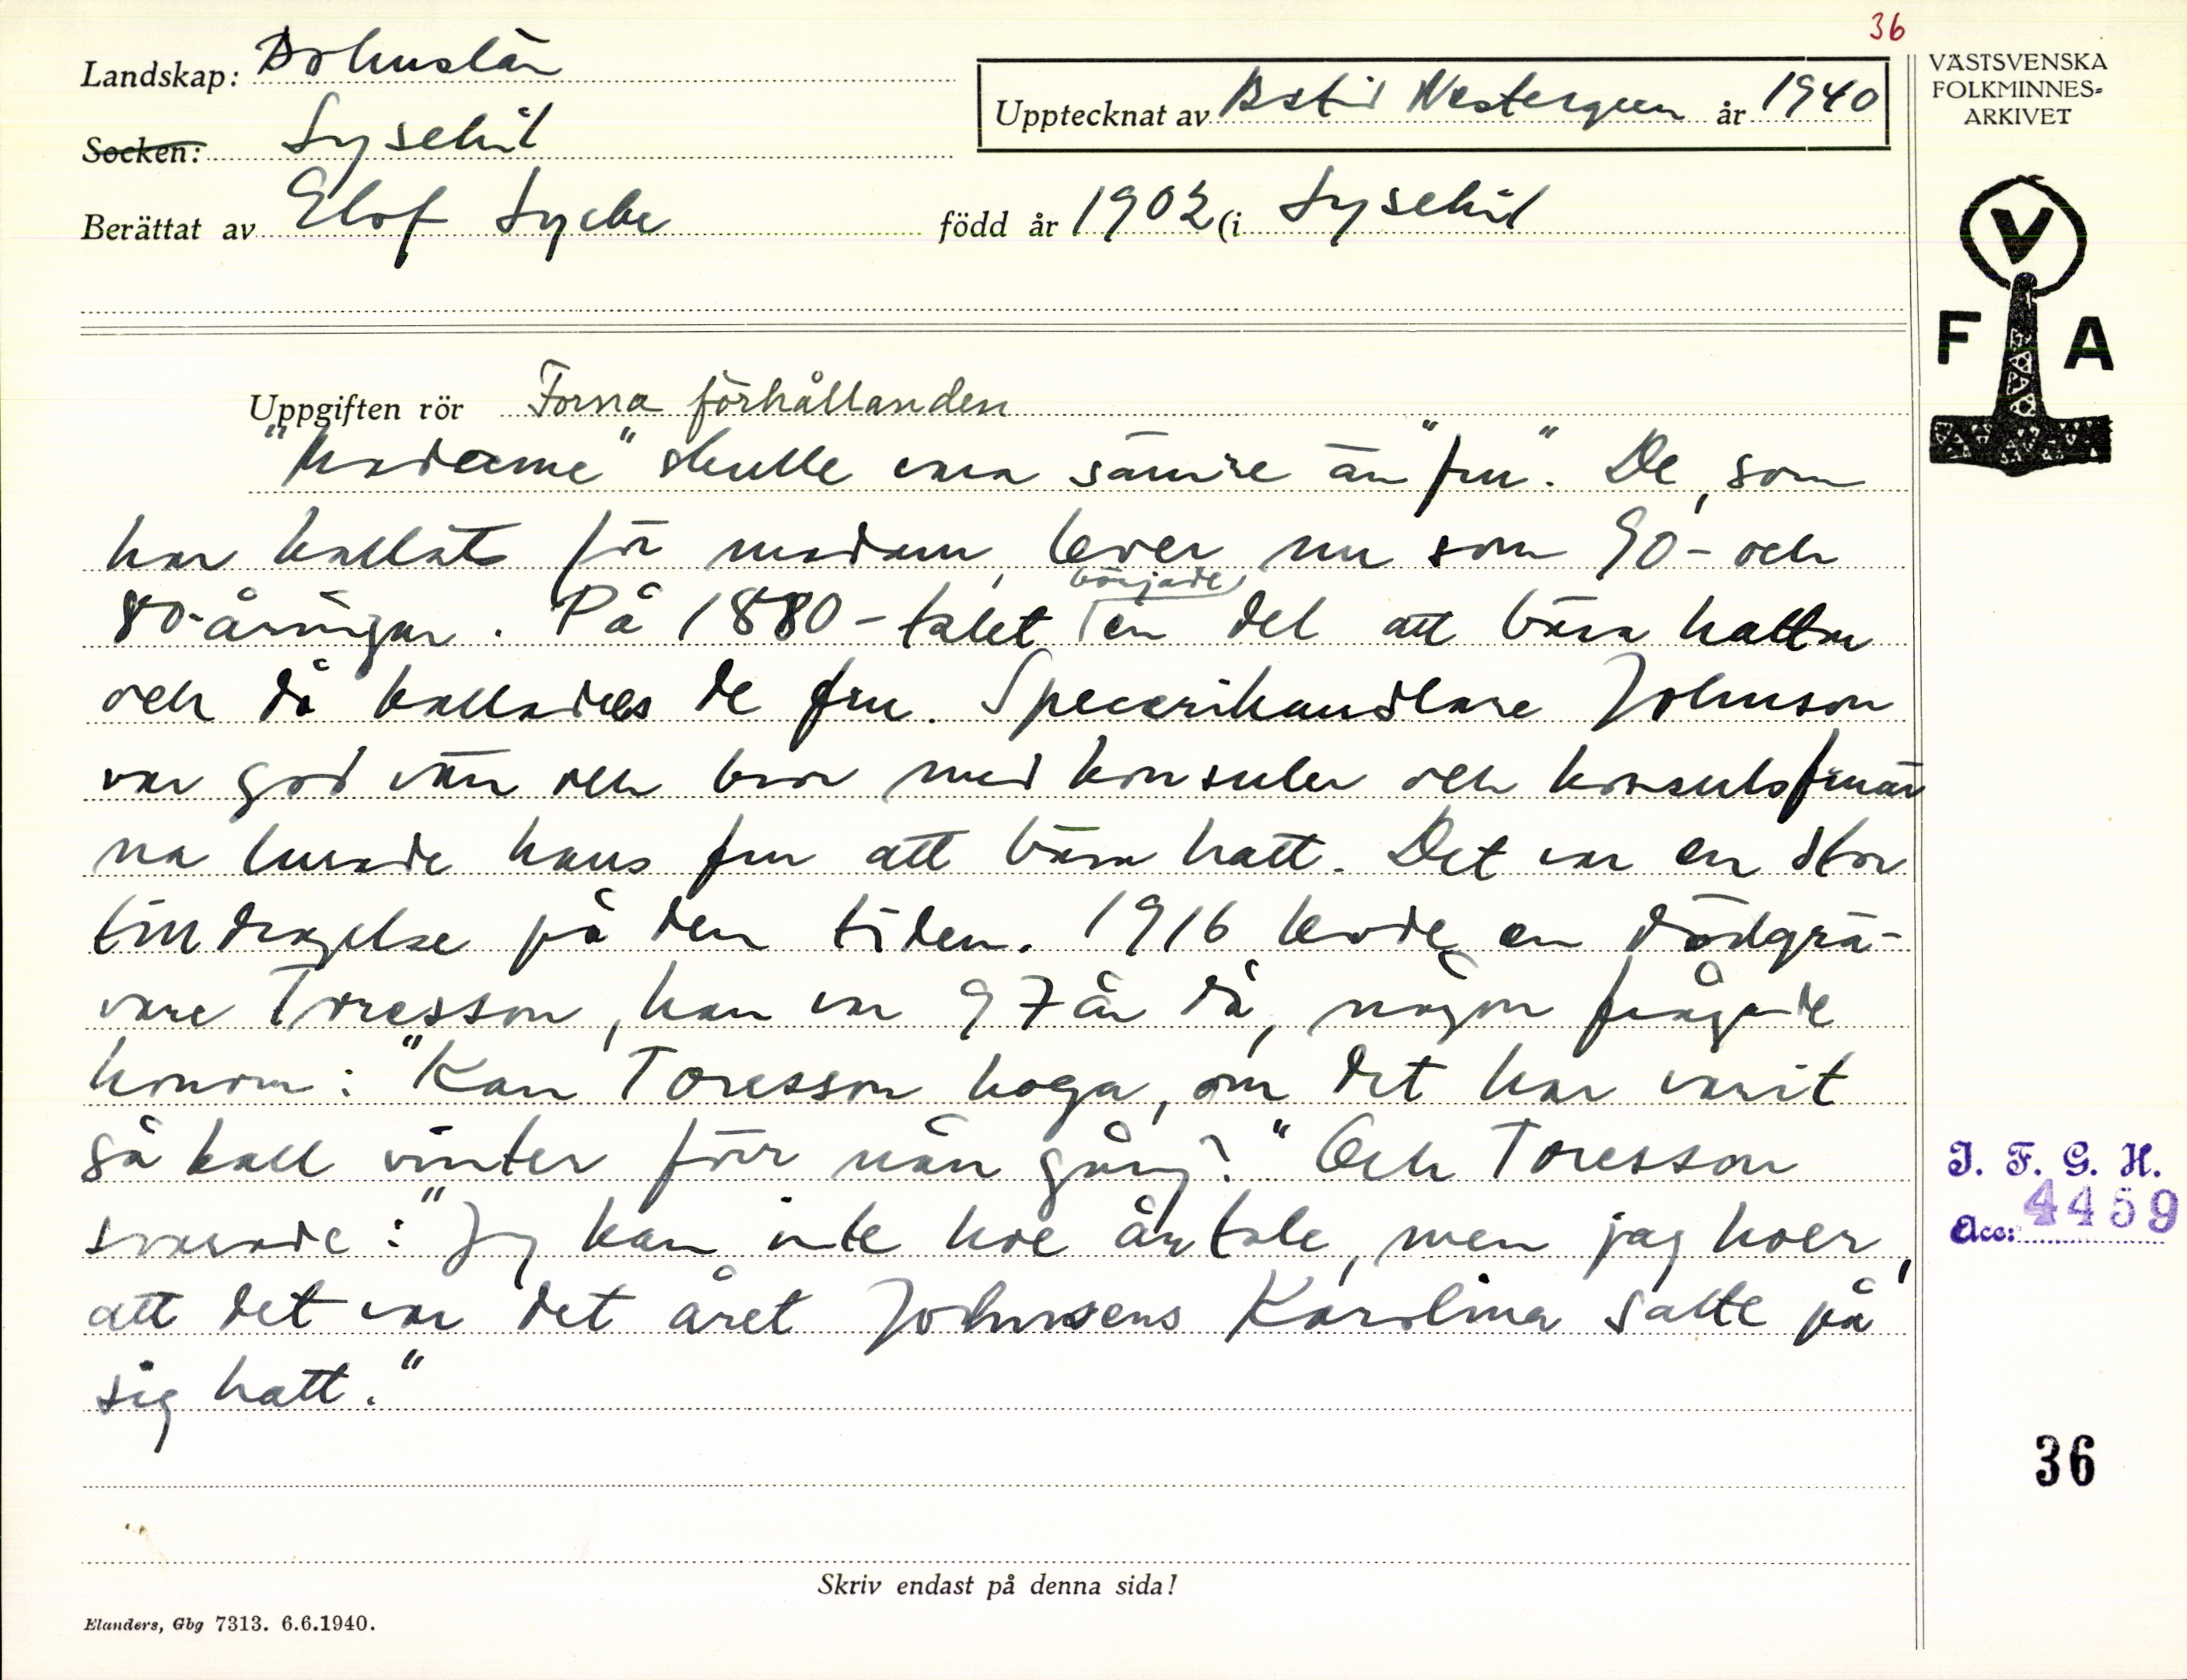 36
Landskap: Bohuslän
Socken: Lysekil
Upptecknat av Astrid Westergren år 1940
Berättat av Elof Lycke född år 1902 (i Lysekil
VÄSTSVENSKA
FOLKMINNES-
ARKIVET
V
F A
Uppgiften rör Forna förhållanden
"Madamme" skulle vara sämre än "fru". De, som
har kallats för madam, lever nu som 90- och
80-åringar. På 1880-talet började en del att bära hattar
och då kallades de fru. Specerihandlare Johnson
var god vän och bror med konsuler och konsulsfruar
na lurade hans fru att bära hatt. Det var en stor
tilldragelse på den tiden. 1916 levde en dödgrä-
vare Torresson, han var 97 år då, någon frågade
honom: "Kan Toresson hoga, om det har varit
så kall vinter förr nån gång?" Och Toresson
svarade: "Jag kan inte hoe årtale, men jag hoer,
att det var det året Johnsens Karolina satte på
sig hatt."
I. F. G. H.
Acc: 4459
36
Skriv endast på denna sida!
Elanders, Gbg 7313. 6.6.1940.